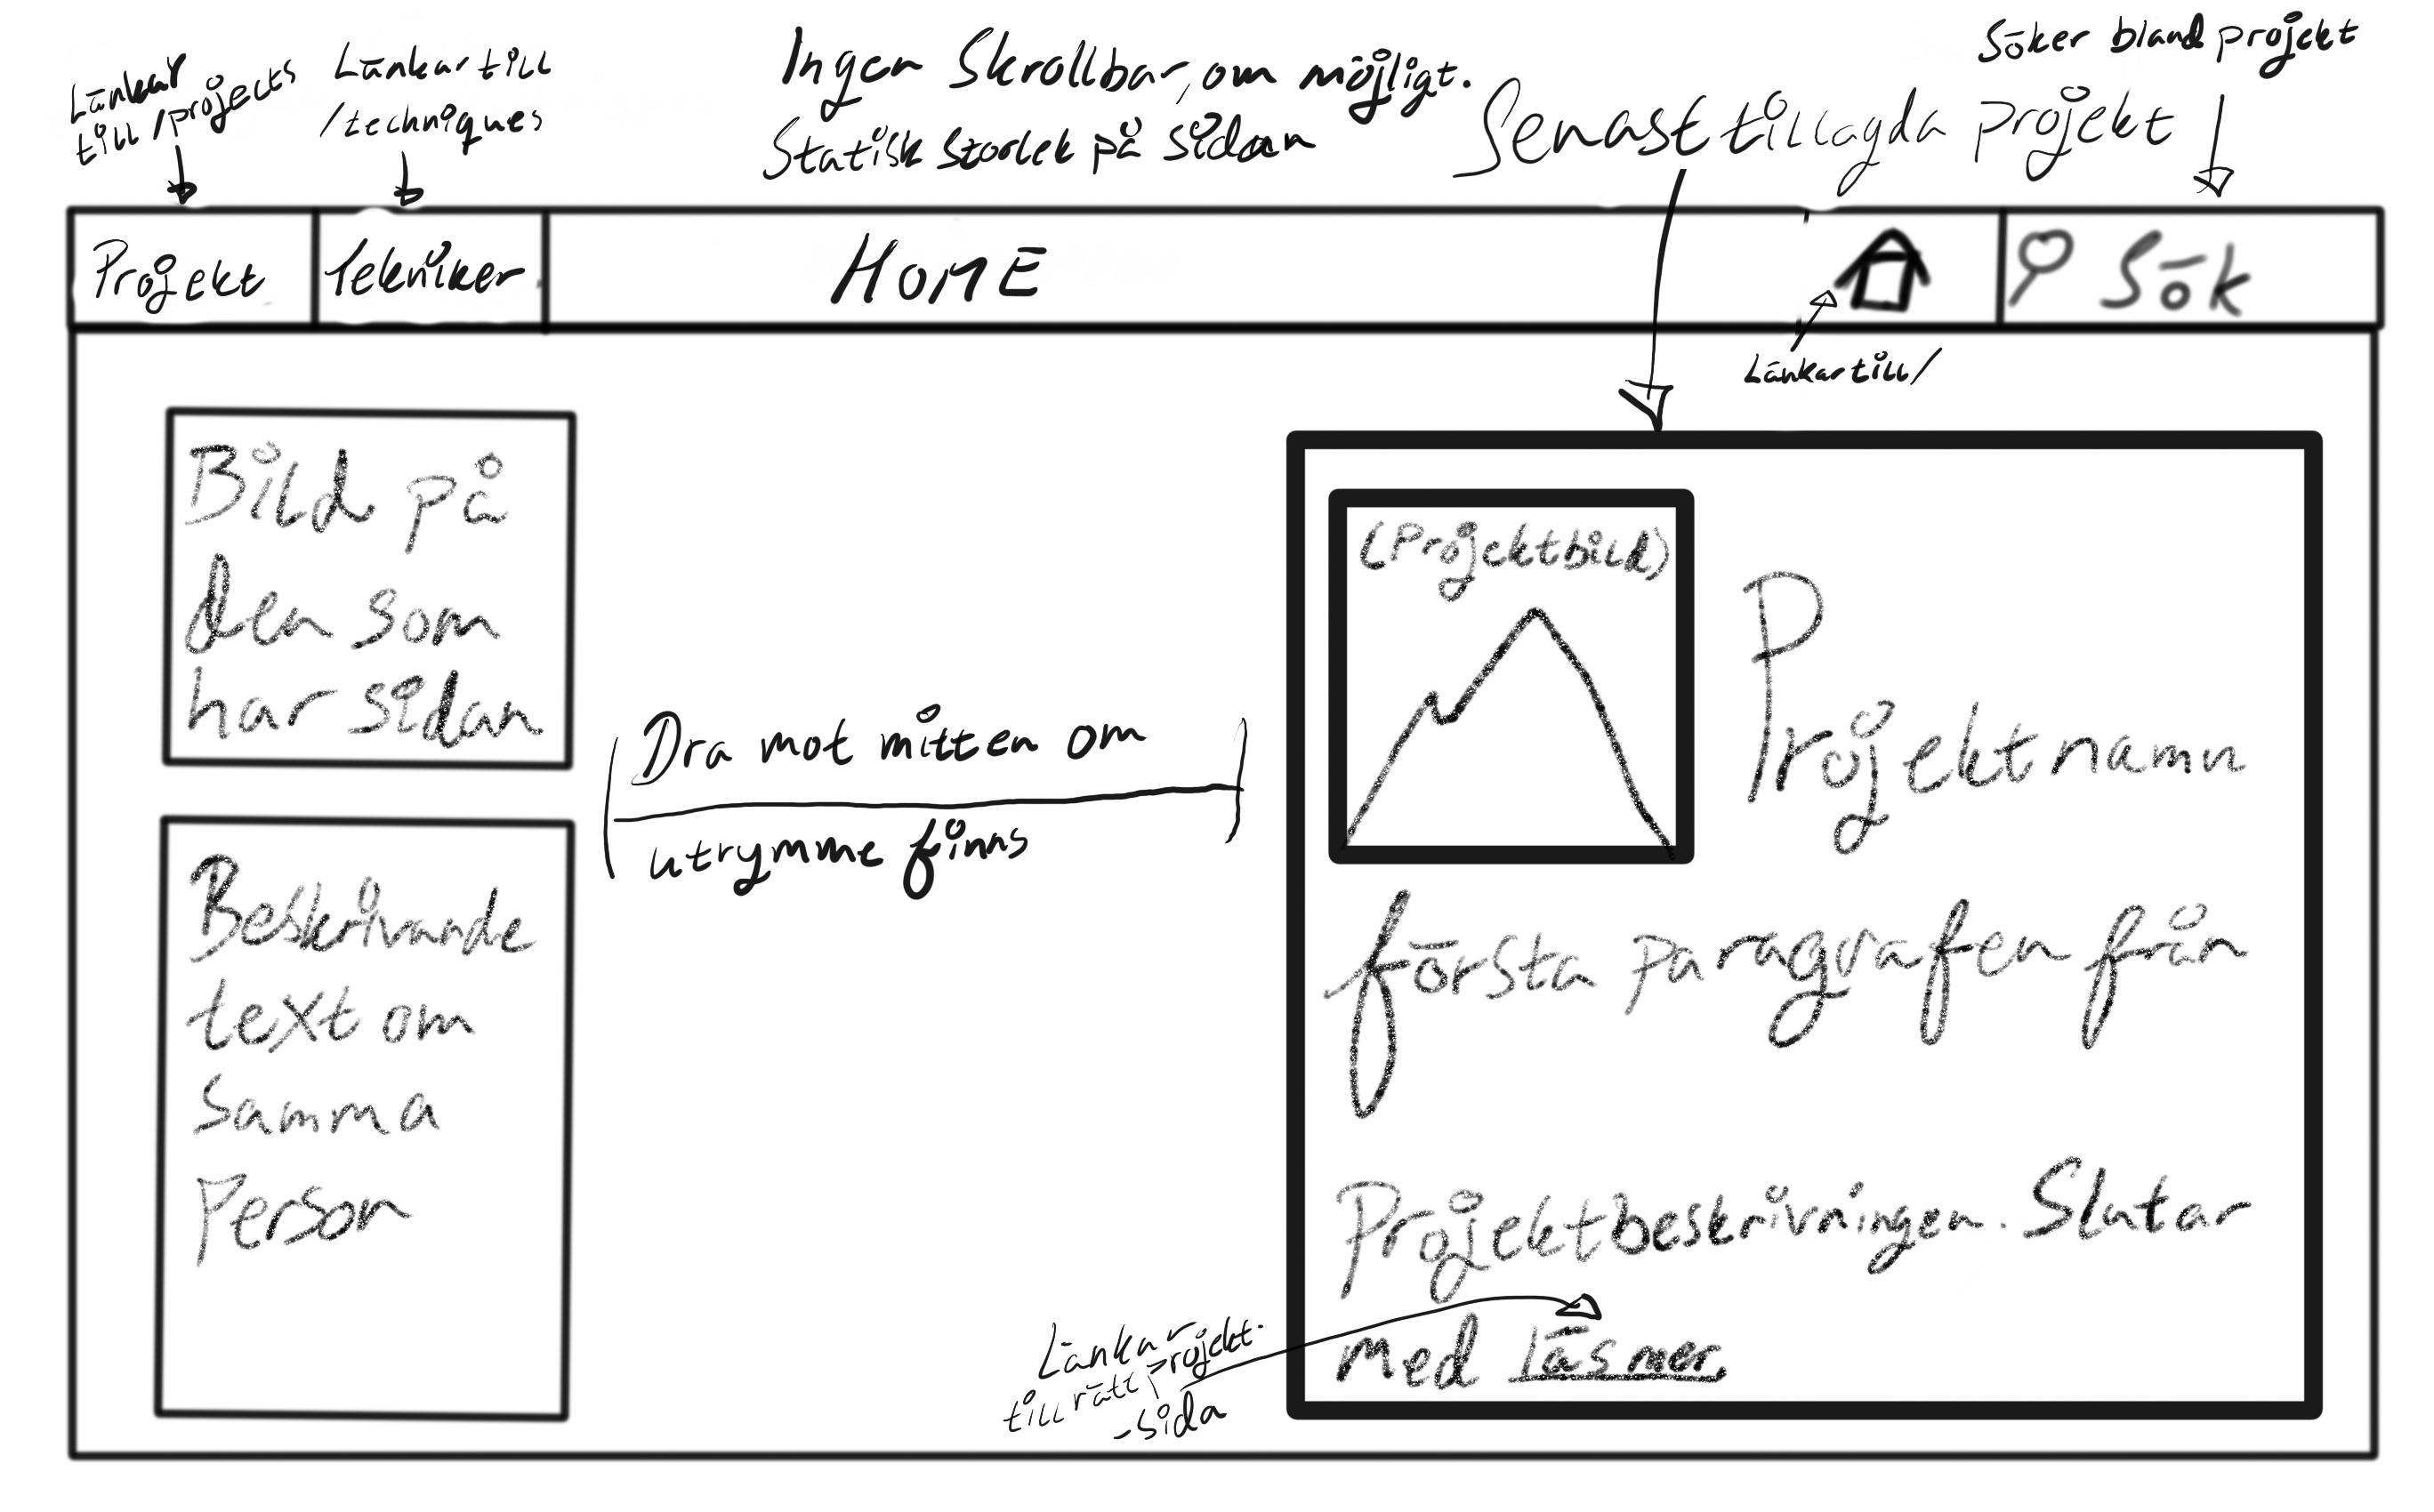 Länkar
till/projects
Länkar till
/techniques
Ingen Skrollbar, om möjligt.
Statisk storlek på sidan
Söker bland projekt
Senast tillagda projekt
Projekt
Tekniker
HOME
Sök
Länkar till/
Bild på
den som
har sidan
Dra mot mitten om
utrymme finns
Beskrivande
text om
samma
Person
(Projektbild)
Projektnamn
första paragrafen från
Projektbeskrivningen. Slutar
med läs mer.
Länkar
till rätt projekt-
-sida